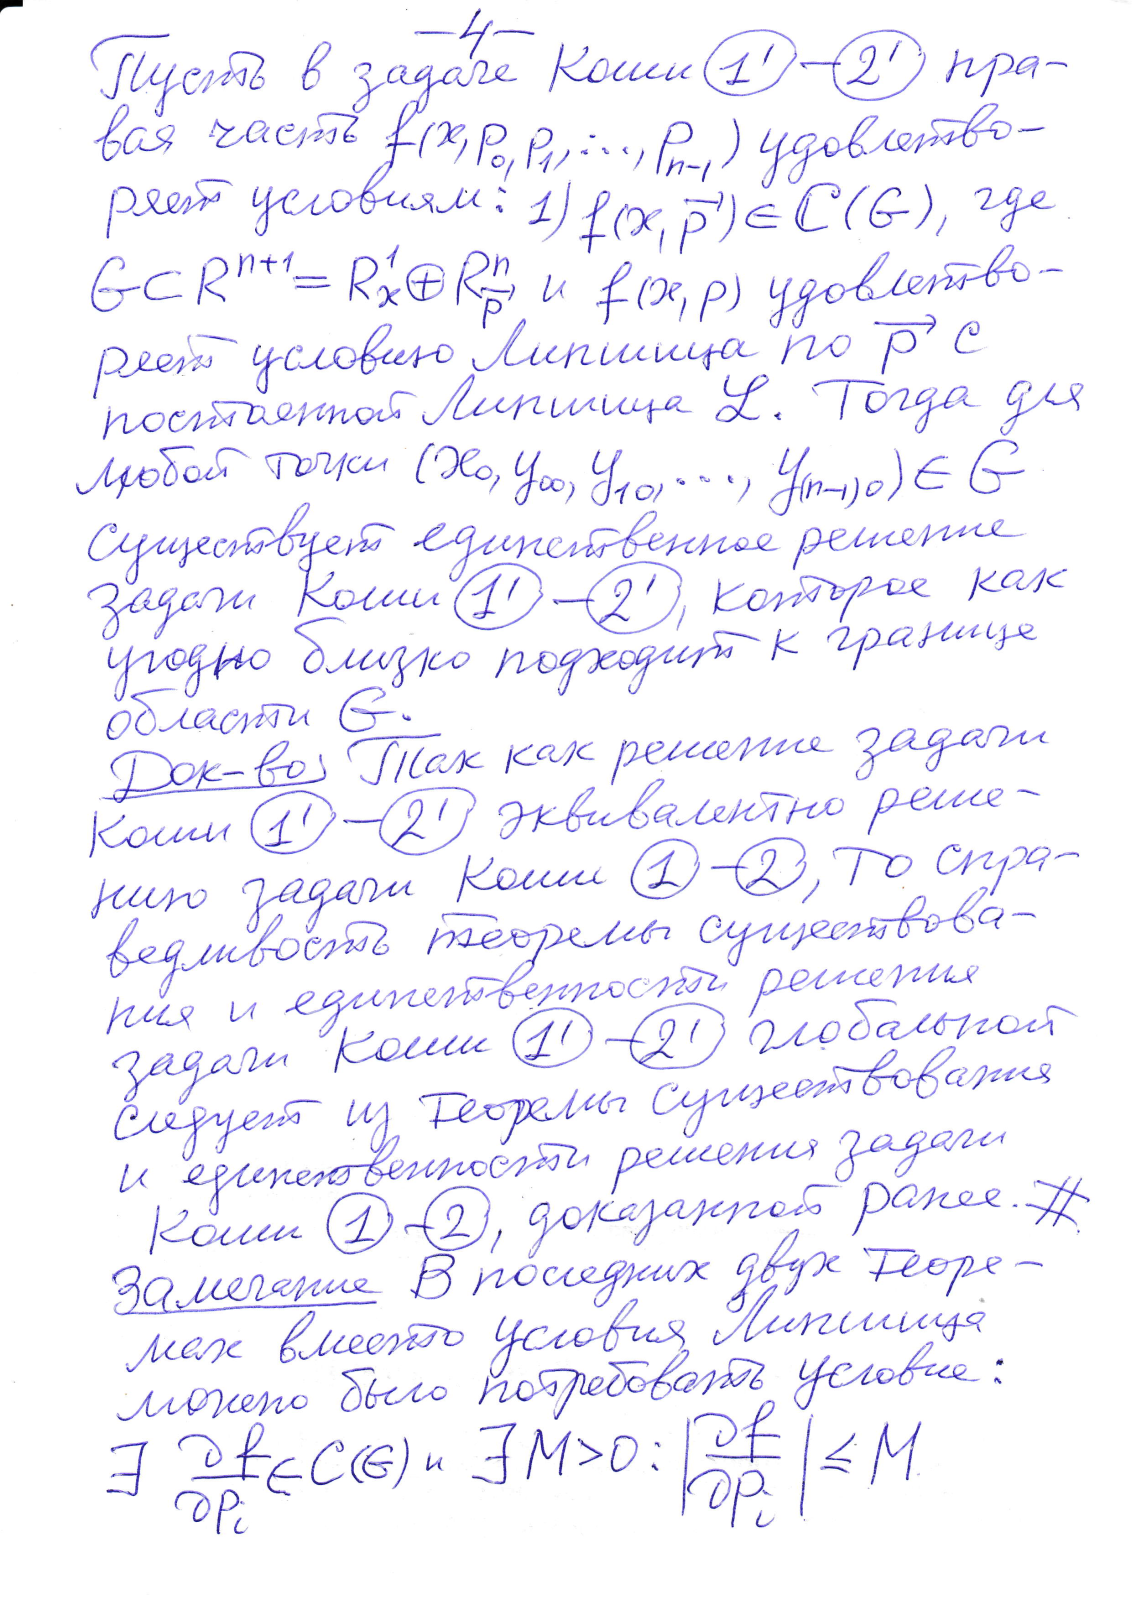 —4—
Пусть в задаче Коши (1')—(2') пра-
вая часть f(x, p₀, p₁, ..., pₙ₋₁) удовлетво-
ряет условиям: 1) f(x, p⃗) ∈ C(G), где
G ⊂ Rⁿ⁺¹ = R¹ₓ ⊕ Rⁿ_p⃗ и f(x, p) удовлетво-
ряет условию Липшица по p⃗ с
постоянной Липшица L. Тогда для
любой точки (x₀, y₀₀, y₁₀, ..., y₍ₙ₋₁₎₀) ∈ G
существует единственное решение
задачи Коши (1')—(2'), которое как
угодно близко подходит к границе
области G.
Док-во) Так как решение задачи
Коши (1')—(2') эквивалентно реше-
нию задачи Коши (1)—(2), то спра-
ведливость теоремы существова-
ния и единственности решения
задачи Коши (1')—(2') глобальной
следует из теоремы существования
и единственности решения задачи
Коши (1)—(2), доказанной ранее. #
Замечание В последних двух теоре-
мах вместо условия Липшица
можно было потребовать условие:
∃ ∂f/∂pᵢ ∈ C(G) и ∃ M>0 : |∂f/∂pᵢ| ≤ M